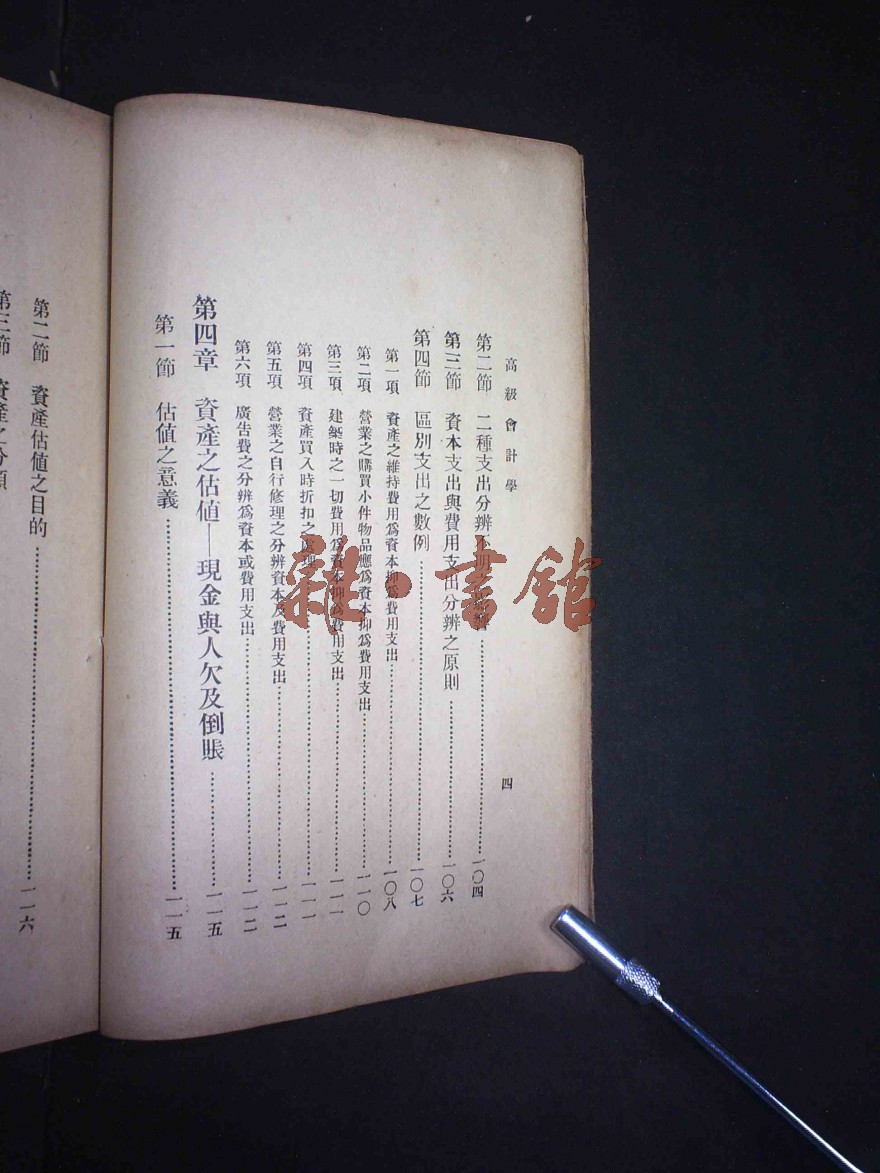 高級會計學
四
第二節 二種支出分辨不明之影響……一〇四
第三節 資本支出與費用支出分辨之原則……一〇六
第四節 區別支出之數例……一〇七
第一項 資產之維持費用爲資本抑爲費用支出……一〇八
第二項 營業之購買小件物品應爲資本抑爲費用支出……一一〇
第三項 建築時之一切費用爲資本抑爲費用支出……一一一
第四項 資產買入時折扣之處理……一一一
第五項 營業之自行修理之分辨資本及費用支出……一一二
第六項 廣告費之分辨爲資本或費用支出……一一二
第四章 資產之估値—現金與人欠及倒賬……一一五
第一節 估値之意義……一一五
第二節 資產估値之目的……一一六
第三節 資產之分類
雜·書館